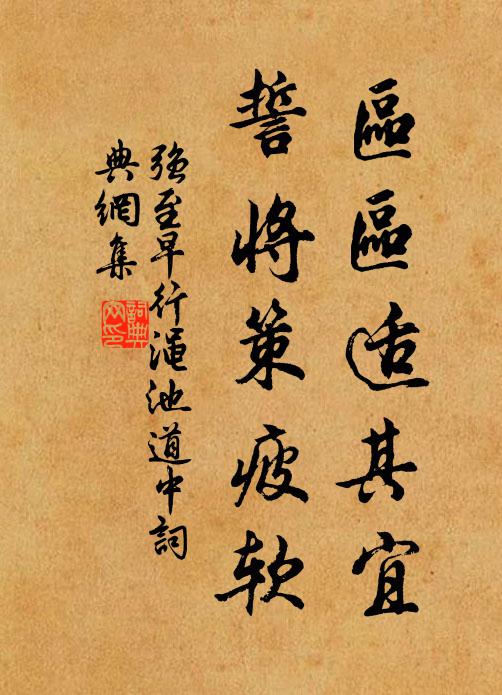 區區适其宜
誓將策疲软
强至早行渑池道中詞
典網集
詞典
网印